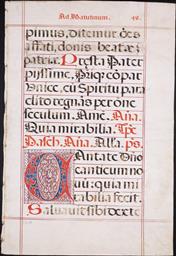 Ad Matutinum. 49.
pimus, ditemur bea
tæ
patriæ. Præsta Pater
piissime, Patriq; compar
Unice, cũ Spiritu para
clito regnas per omne
sæculum. Amẽ. Aña.
Quia mirabilia. Tpe
Pasch. Aña. Alla. ps.
Cantate Dño
canticum no
vũ: quia mi
rabilia fecit.
Salvavit sibi dexte